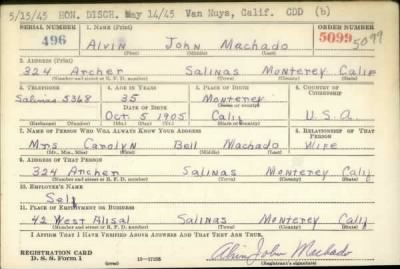 5/15/45 HON. DISCH. May 14/45 Van Nuys, Calif. CDD (b)
SERIAL NUMBER 1. NAME (Print) ORDER NUMBER
496 Alvin John Machado 5099 5099
2. ADDRESS (Print)
324 Archer Salinas Monterey Calif
(Number and street or R. F. D. number) (Town) (County) (State)
3. TELEPHONE 4. AGE IN YEARS 5. PLACE OF BIRTH 6. COUNTRY OF CITIZENSHIP
Salinas 5368 35 Monterey
DATE OF BIRTH (Town or county)
Oct 5 1905 Calif U.S.A.
(Exchange) (Number) (Mo.) (Day) (Yr.) (State or country)
7. NAME OF PERSON WHO WILL ALWAYS KNOW YOUR ADDRESS 8. RELATIONSHIP OF THAT PERSON
Mrs Carolyn Bell Machado Wife
(Mr., Mrs., Miss) (First) (Middle) (Last)
9. ADDRESS OF THAT PERSON
324 Archer Salinas Monterey Calif
(Number and street or R. F. D. number) (Town) (County) (State)
10. EMPLOYER'S NAME
Self
11. PLACE OF EMPLOYMENT OR BUSINESS
42 West Alisal Salinas Monterey Calif
(Number and street or R. F. D. number) (Town) (County) (State)
I AFFIRM THAT I HAVE VERIFIED ABOVE ANSWERS AND THAT THEY ARE TRUE.
REGISTRATION CARD
D. S. S. Form 1 (over) 16—17105 Alvin John Machado
(Registrant's signature)